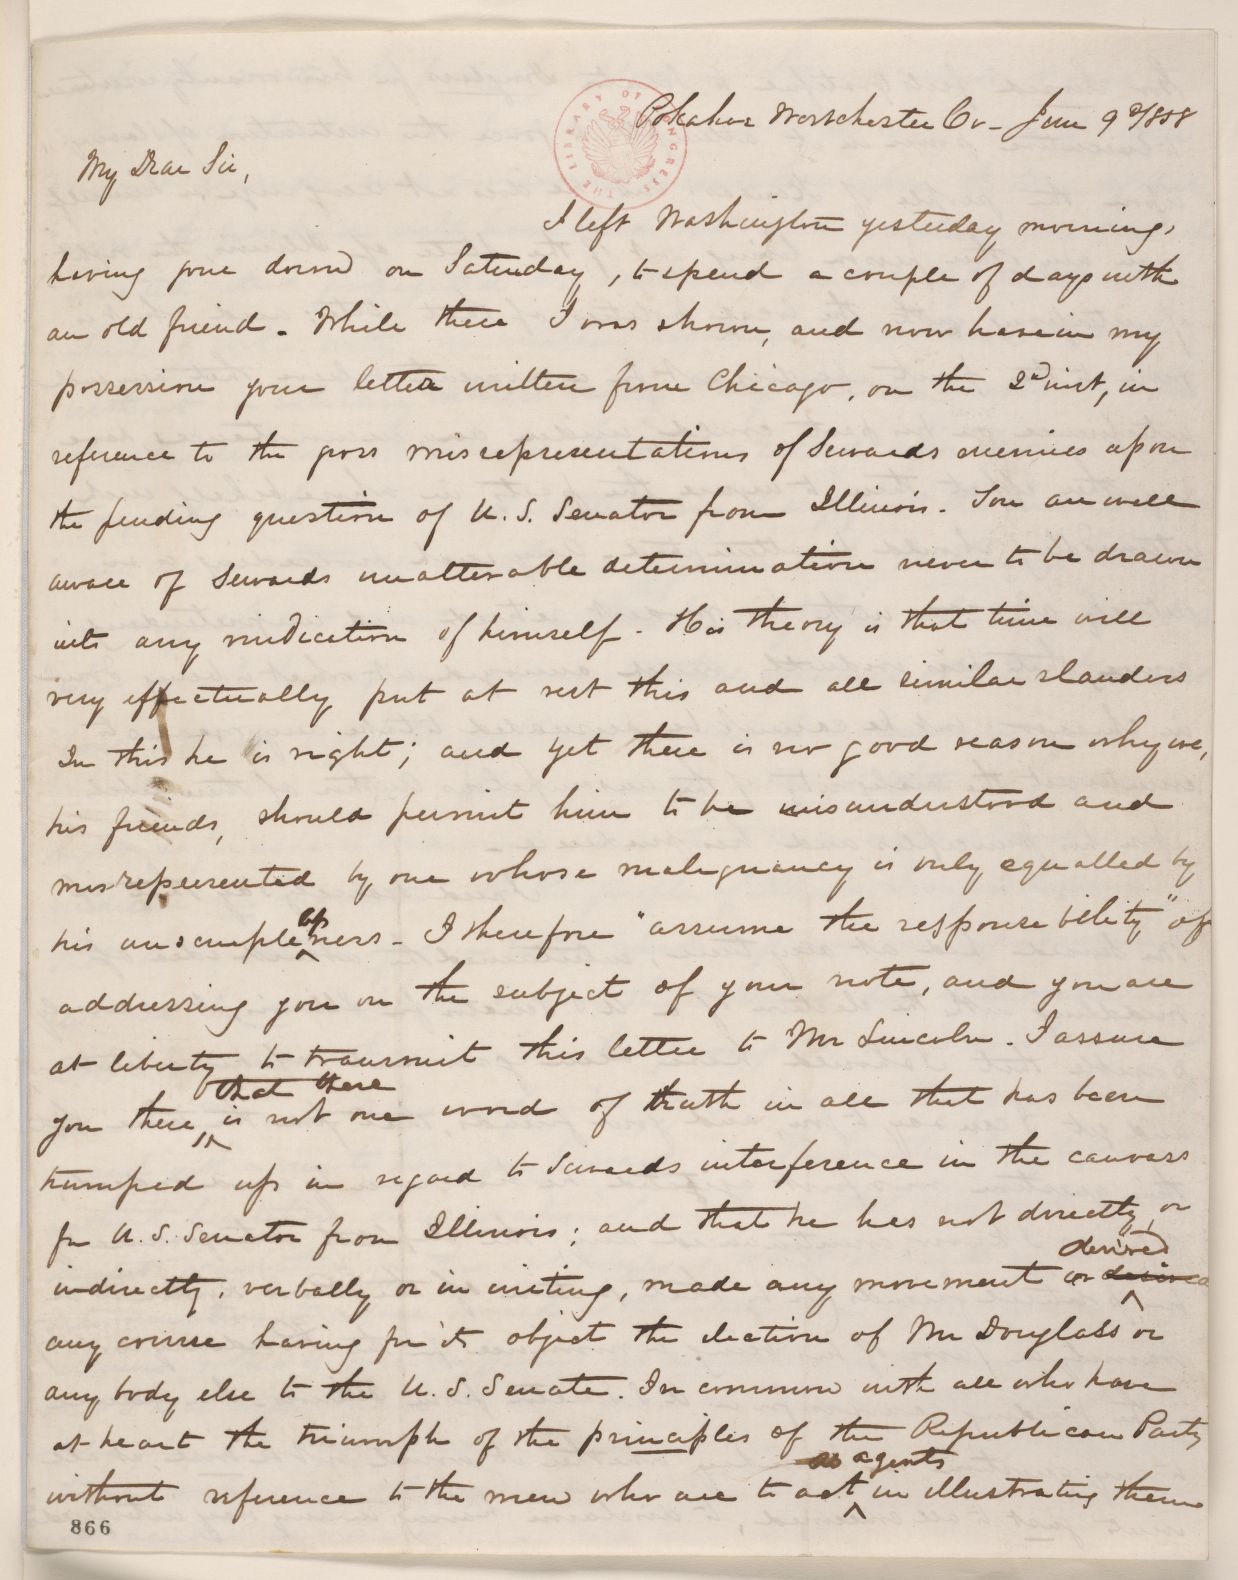 Pokahoe Westchester Co - June 9th/858
THE LIBRARY OF CONGRESS
My Dear Sir,
I left Washington yesterday morning,
having gone down on Saturday, to spend a couple of days with
an old friend. While there I was shown, and now have in my
possession your letter written from Chicago, on the 2d inst, in
reference to the gross misrepresentations of Sewards enemies upon
the pending question of U. S. Senator from Illinois. You are well
aware of Sewards unalterable determination never to be drawn
into any vindication of himself. His theory is that time will
very effectually put at rest this and all similar slanders
In this he is right; and yet there is no good reason why we,
his friends, should permit him to be misunderstood and
misrepresented by one whose malignancy is only equalled by
his unscrupleousness - I therefore "assume the responsebility" of
addressing you on the subject of your note, and you are
at liberty to transmit this letter to Mr Lincoln. I assure
that there
you there is not one word of truth in all that has been
trumped up in regard to Sewards interference in the canvass
for U. S. Senator from Illinois; and that he has not directly, or
desired
indirectly, verbally or in writing, made any movement or desired
any course having for its object the election of Mr Douglass or
any body else to the U. S. Senate. In common with all who have
at heart the triumph of the principles of the Republican Party
as agents
without reference to the men who are to act in illustrating them
866